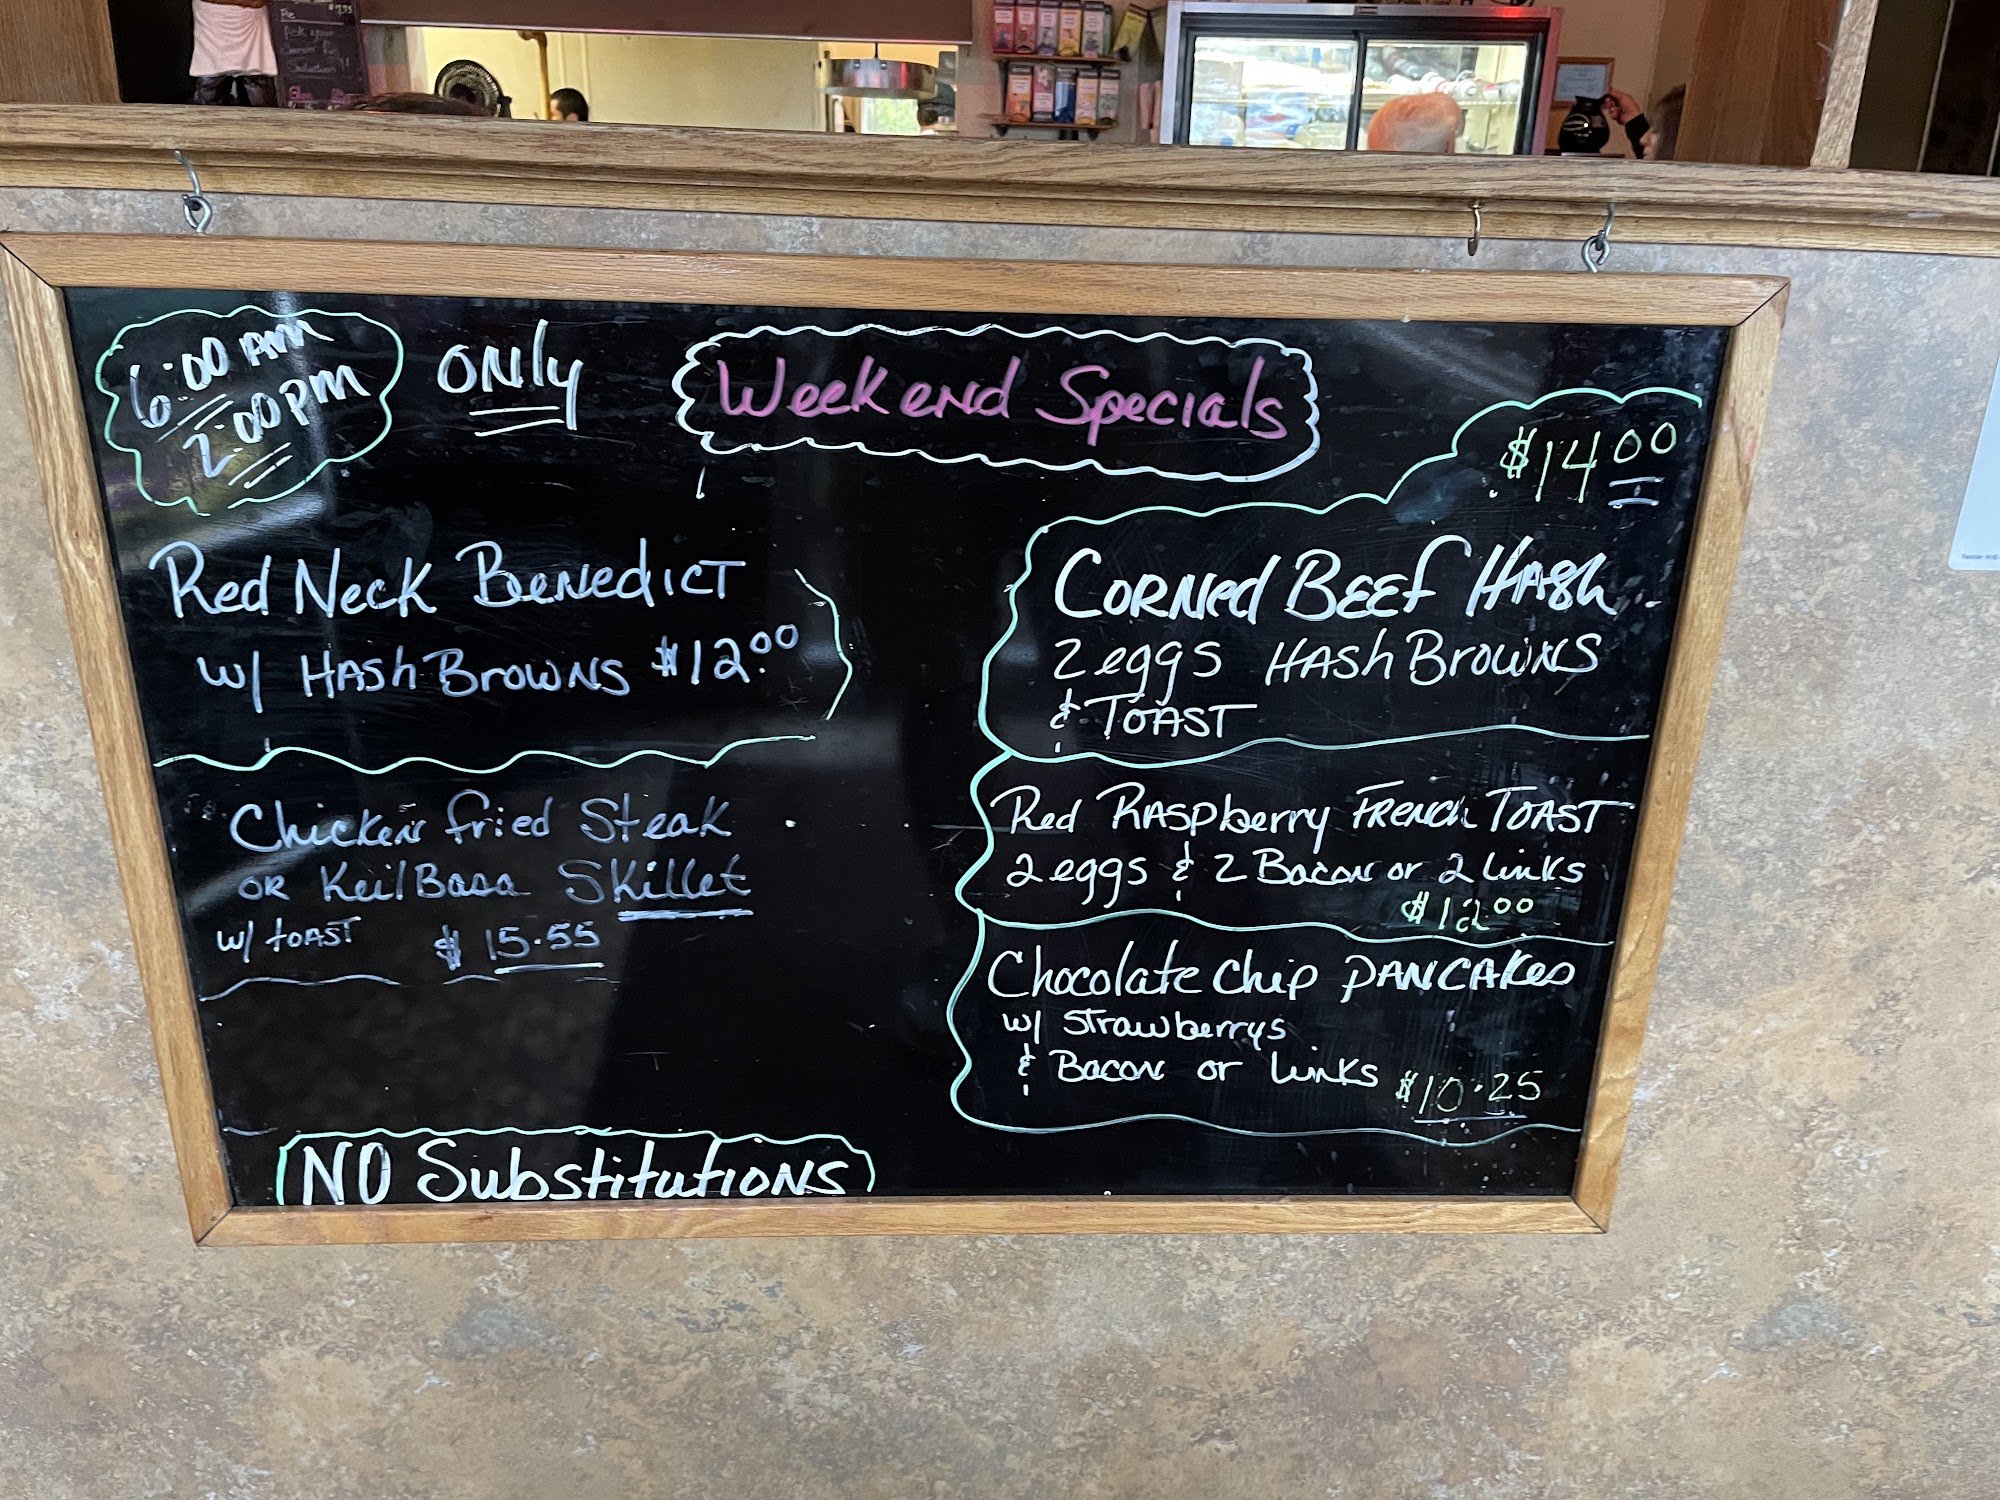 6:00 AM
2:00 PM
ONly
Weekend Specials
Red Neck Benedict
w/ HASH BROWNS $12.00
Chicken fried Steak
OR KeilBasa Skillet
w/ TOAST $15.55
NO Substitutions
$14.00
CORNed BEEf HASh
2 eggs HASh BROWNS
& TOAST
Red RASpberry FRENCh TOAST
2 eggs & 2 Bacon or 2 links
$12.00
Chocolate Chip PANCAKes
w/ Strawberrys
& Bacon or links $10.25